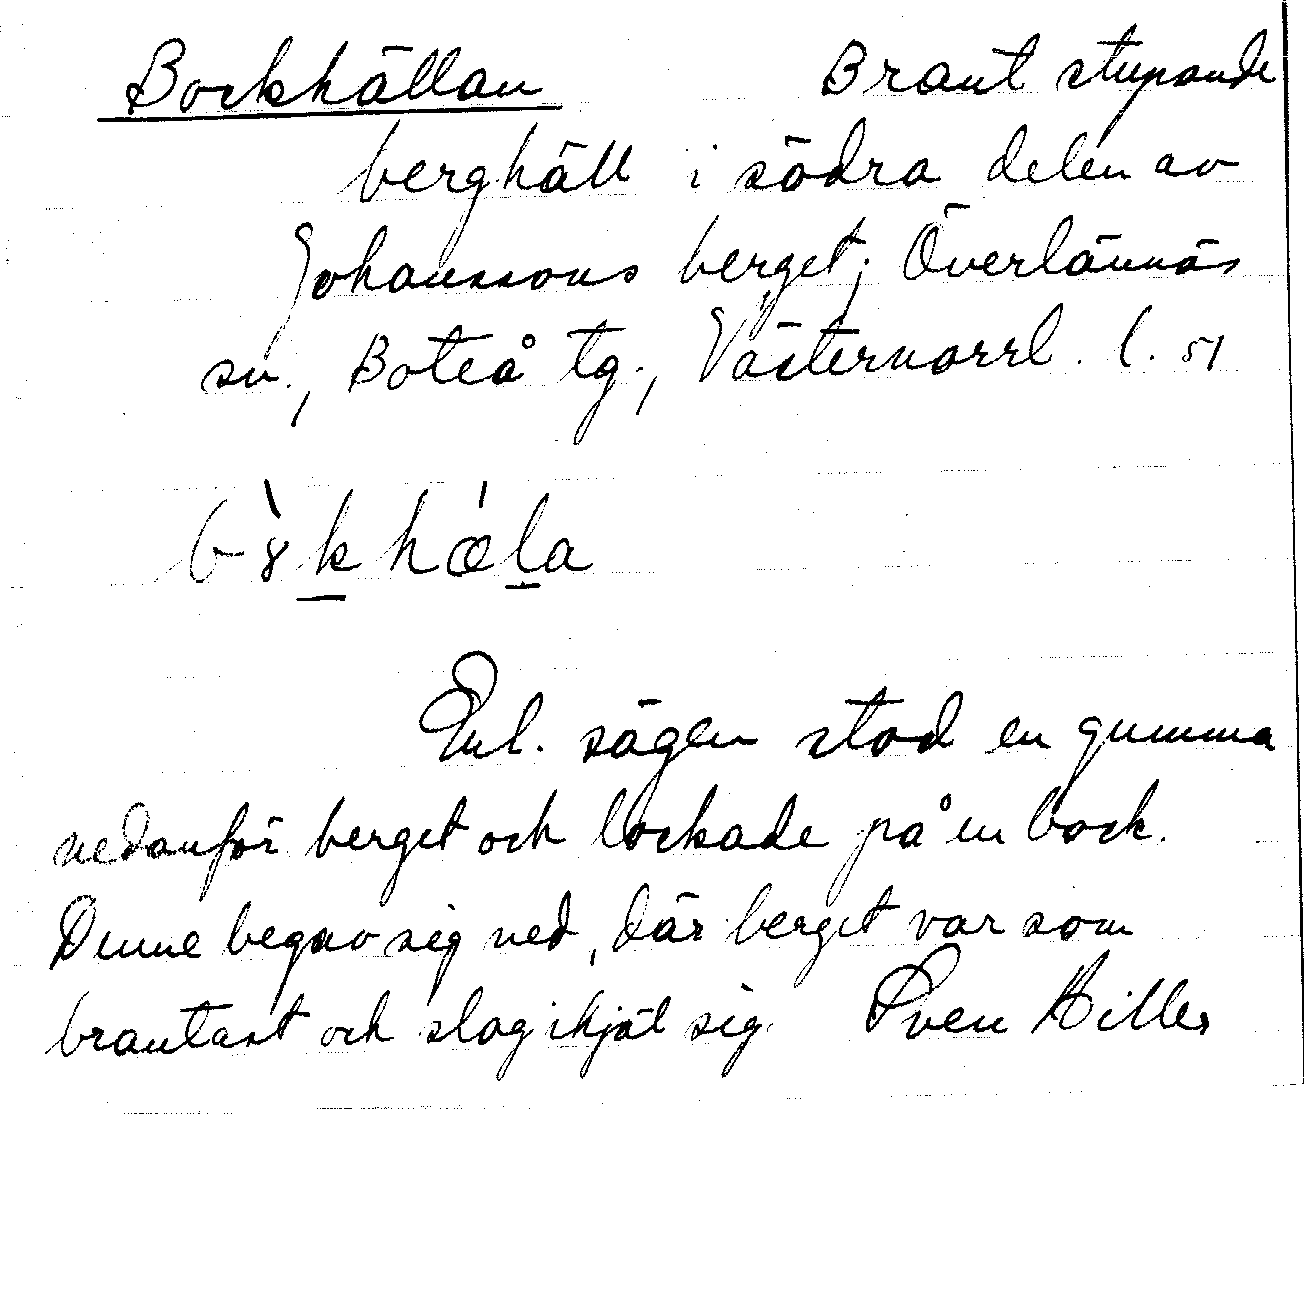 Bockhällan Brant stupande
berghäll i södra delen av
Johanssons berget; Överlännäs
sn., Boteå tg., Västernorrl. l. 51
bòkhǽla
Enl. sägen stod en gumma
nedanför berget och lockade på en bock.
Denne begav sig ned, där berget var som
brantast och slog ihjäl sig. Sven Hiller